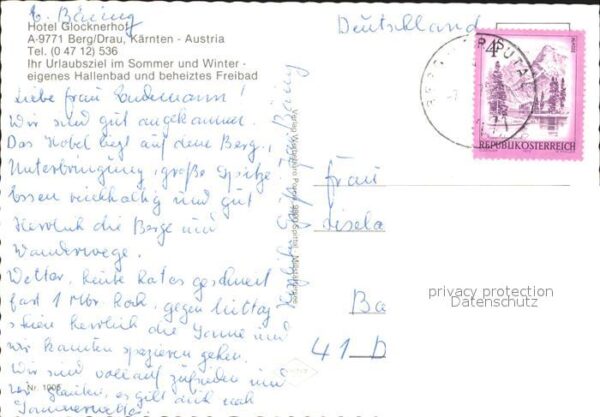 E. Büsing
Hotel Glocknerhof
A-9771 Berg/Drau, Kärnten - Austria
Tel. (0 47 12) 536
Ihr Urlaubsziel im Sommer und Winter -
eigenes Hallenbad und beheiztes Freibad
Liebe Frau
Wir sind gut angekommen.
Das Hotel liegt auf dem Berg,
Unterbringung, große Spitze,
Essen reichhaltig und gut
Herrlich die Berge und
Wanderwege.
Wetter, heute hat es geschneit
fast 1 Mtr. hoch, gegen Mittag
schien herrlich die Sonne und
wir konnten spazieren gehen.
Wir sind voll auf zufrieden und
wir glauben, es gibt doch noch
Sommerwetter
Herzliche Grüße
Nr. 1006
Deutschland
4
REPUBLIK ÖSTERREICH
Frau
isela
Ba
41 D
privacy protection
Datenschutz